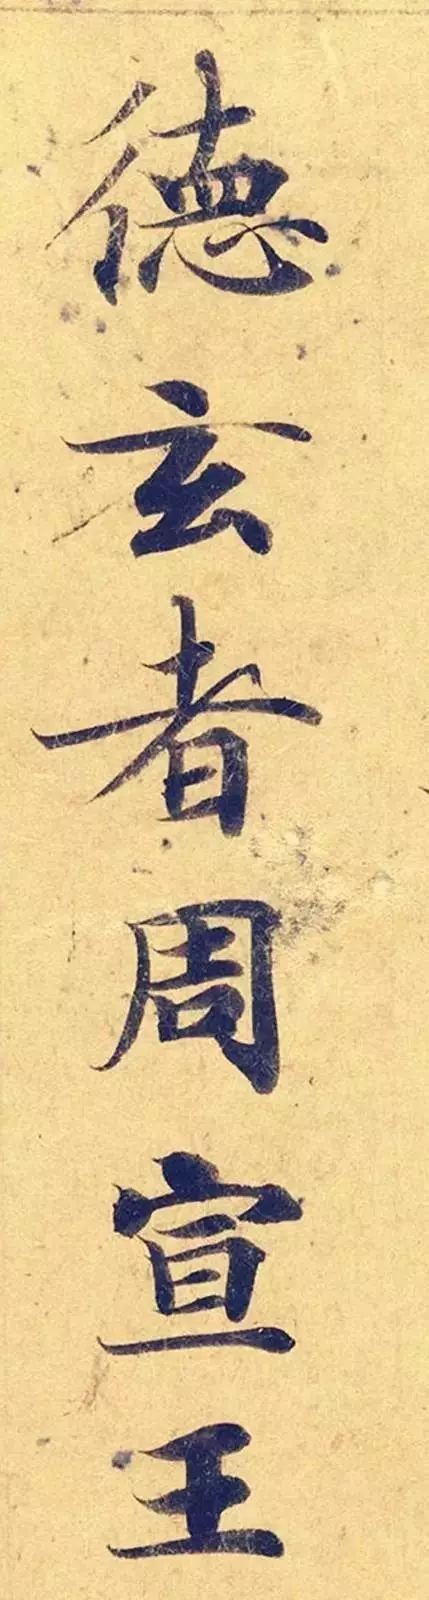 德玄者周宣王